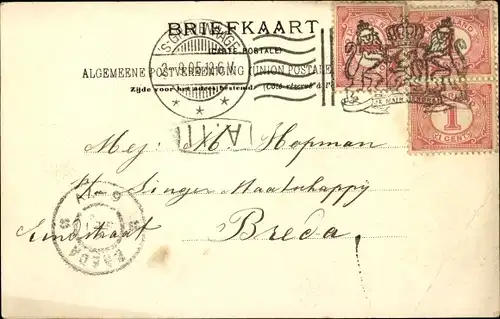 BRIEFKAART
(CARTE POSTALE)
ALGEMEENE POSTVEREENIGING (UNION POSTALE
Zijde voor het adres bestemd. (Côté réservé à
'S GRAVENHAGE
JE MAINTIENDRAI
1
CENT
Mej: M. Hopman
p/a Singer Maatschappij
Eindstraat Breda.
BREDA